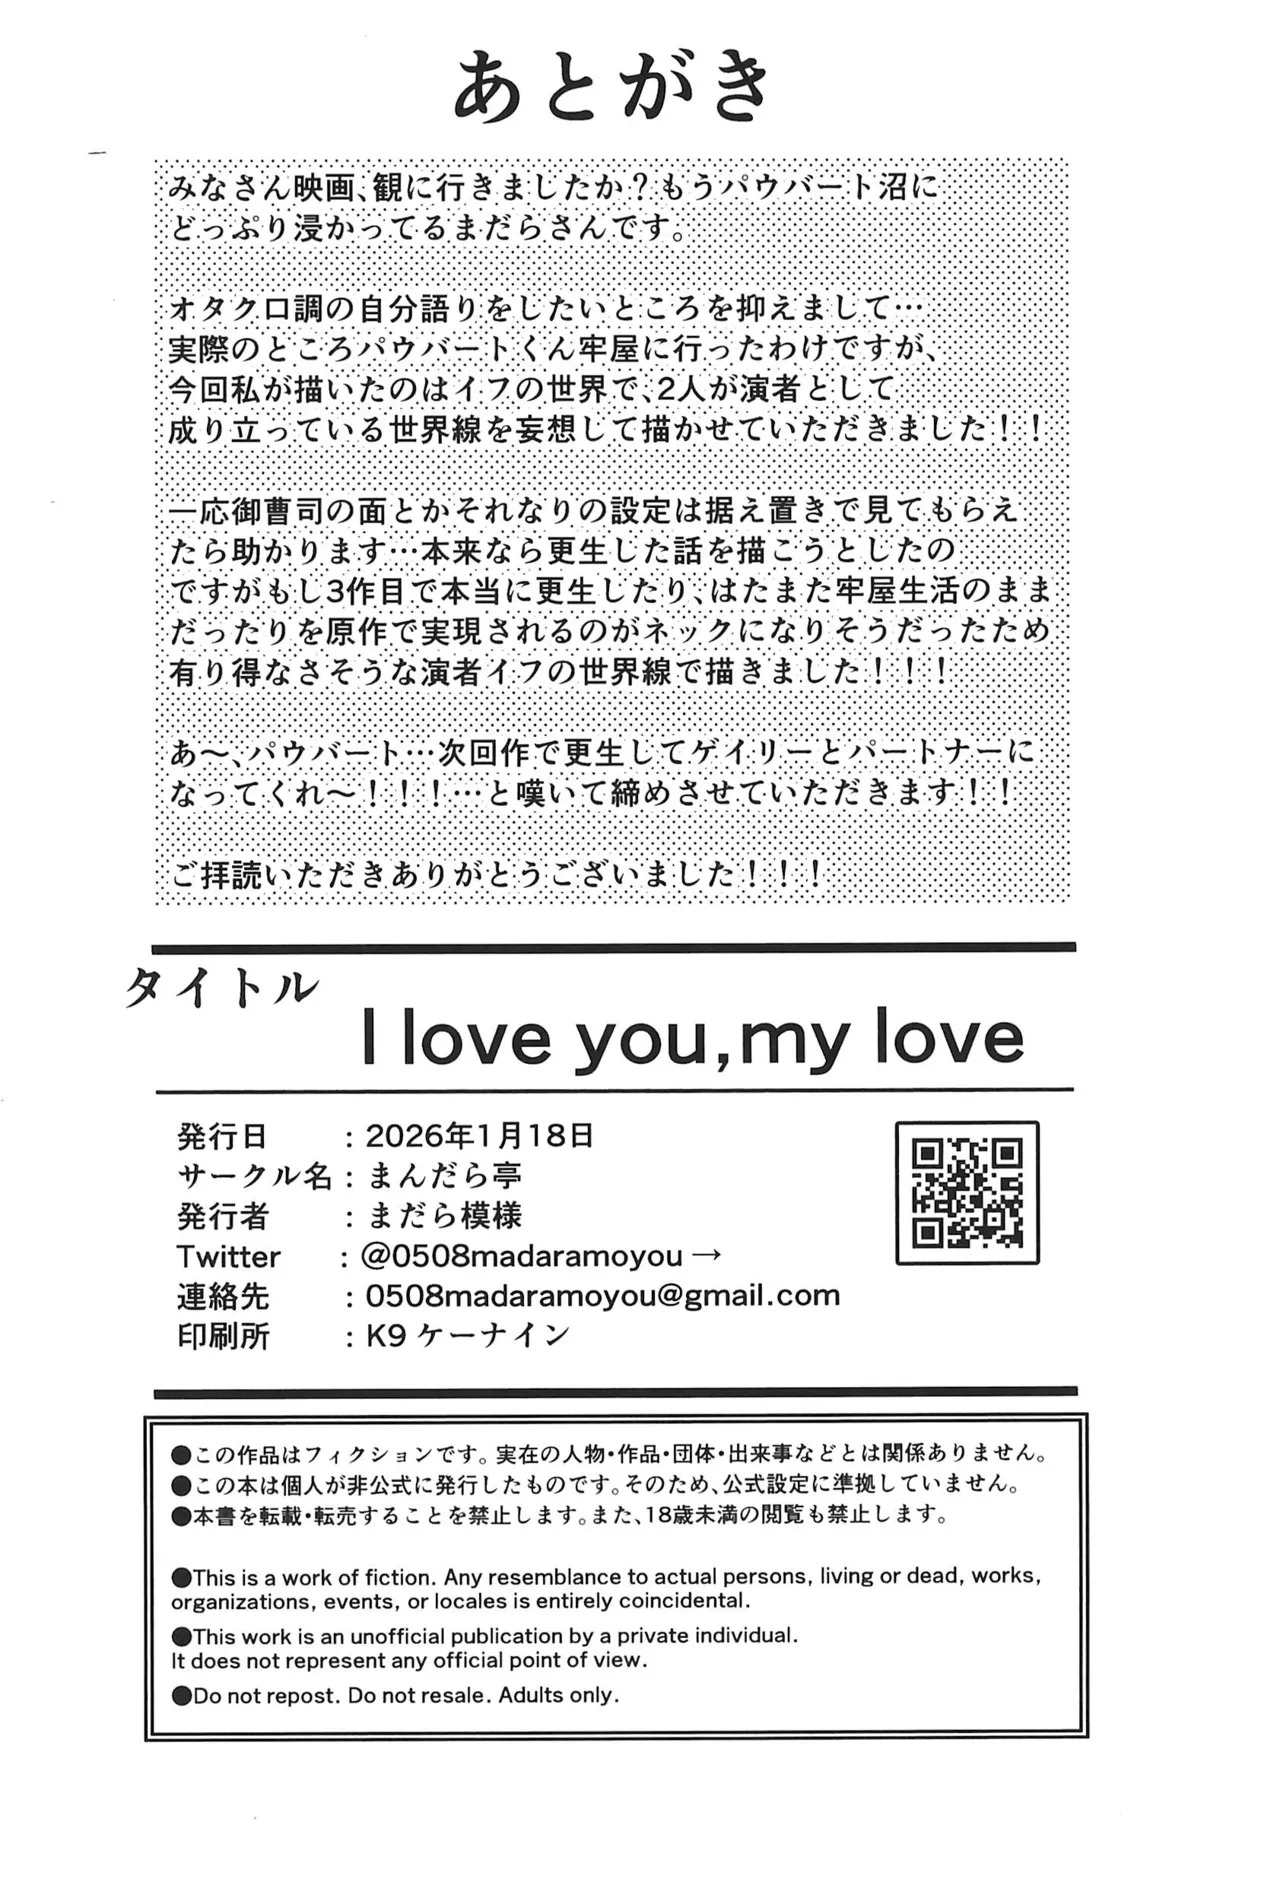 あとがき
みなさん映画、観に行きましたか？もうパウバート沼に
どっぷり浸かってるまだらさんです。
オタク口調の自分語りをしたいところを抑えまして…
実際のところパウバートくん牢屋に行ったわけですが、
今回私が描いたのはイフの世界で、2人が演者として
成り立っている世界線を妄想して描かせていただきました！！
一応御曹司の面とかそれなりの設定は据え置きで見てもらえ
たら助かります…本来なら更生した話を描こうとしたの
ですがもし3作目で本当に更生したり、はたまた牢屋生活のまま
だったりを原作で実現されるのがネックになりそうだったため
有り得なさそうな演者イフの世界線で描きました！！！
あ～、パウバート…次回作で更生してゲイリーとパートナーに
なってくれ～！！！…と嘆いて締めさせていただきます！！
ご拝読いただきありがとうございました！！！
タイトル
I love you,my love
発行日 : 2026年1月18日
サークル名 : まんだら亭
発行者 : まだら模様
Twitter : @0508madaramoyou →
連絡先 : 0508madaramoyou@gmail.com
印刷所 : K9 ケーナイン
●この作品はフィクションです。実在の人物・作品・団体・出来事などとは関係ありません。
●この本は個人が非公式に発行したものです。そのため、公式設定に準拠していません。
●本書を転載・転売することを禁止します。また、18歳未満の閲覧も禁止します。
●This is a work of fiction. Any resemblance to actual persons, living or dead, works,
organizations, events, or locales is entirely coincidental.
●This work is an unofficial publication by a private individual.
It does not represent any official point of view.
●Do not repost. Do not resale. Adults only.